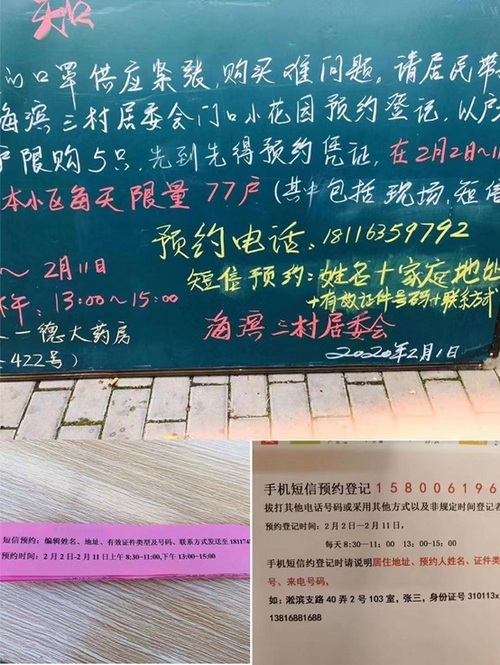 口罩供应紧张,购买难问题,请居民带
海滨三村居委会门口小花园预约登记,以户
户限购5只,先到先得预约凭证,在2月2日~11
本小区每天限量77户(其中包括现场,短信
预约电话:18116359792
~2月11日
短信预约:姓名+家庭地址
午:13:00~15:00
+有效证件号码+联系方式
一德大药房
海滨三村居委会
422号)
2020年2月1日
短信预约:编辑姓名、地址、有效证件类型及号码、联系方式发送至18117
预约时间:2月2日-2月11日上午8:30-11:00,下午13:00-15:00
手机短信预约登记158006196
拔打其他电话号码或采用其他方式以及非规定时间登记者
预约登记时间:2月2日—2月11日,
每天8:30-11:00 13:00-15:00
手机短信约登记时请说明居住地址、预约人姓名、证件类
号、来电号码,
如:淞滨支路40弄2号103室,张三,身份证号310113x
13816881688